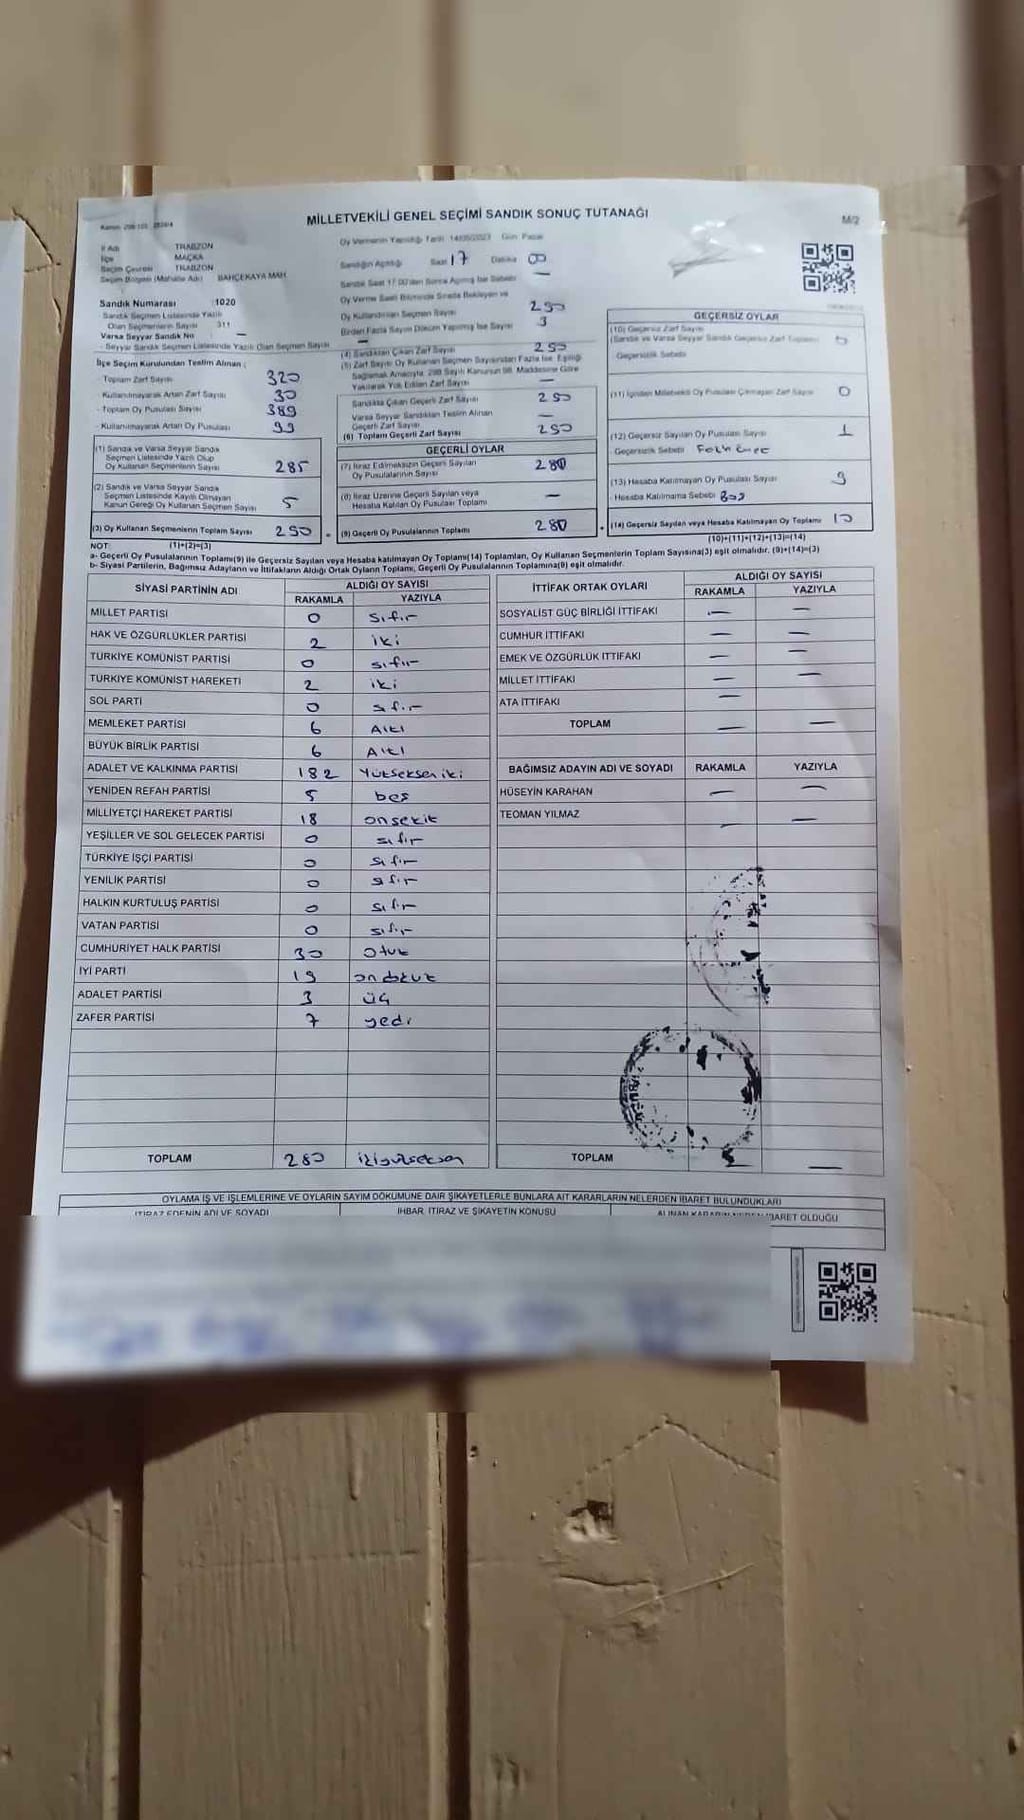 MİLLETVEKİLİ GENEL SEÇİMİ SANDIK SONUÇ TUTANAĞI
M/2
İl Adı TRABZON
İlçe MAÇKA
Seçim Çevresi TRABZON
Seçim Bölgesi (Mahalle Adı) BAHÇEKAYA MAH.
Sandık Numarası :1020
Sandık Seçmen Listesinde Yazılı
Olan Seçmenlerin Sayısı 311
Varsa Seyyar Sandık No —
- Seyyar Sandık Seçmen Listesinde Yazılı Olan Seçmen Sayısı —
İlçe Seçim Kurulundan Teslim Alınan ;
- Toplam Zarf Sayısı 320
- Kullanılmayarak Artan Zarf Sayısı 30
- Toplam Oy Pusulası Sayısı 389
- Kullanılmayarak Artan Oy Pusulası 99
(1) Sandık ve Varsa Seyyar Sandık
Seçmen Listesinde Yazılı Olup
Oy Kullanan Seçmenlerin Sayısı 285
(2) Sandık ve Varsa Seyyar Sandık
Seçmen Listesinde Kayıtlı Olmayan
Kanun Gereği Oy Kullanan Seçmen Sayısı 5
(3) Oy Kullanan Seçmenlerin Toplam Sayısı 290
(1)+(2)=(3)
Oy Vermenin Yapıldığı Tarih 14/05/2023 Gün Pazar
Sandığın Açıldığı Saat 17 Dakika 00
Sandık Saat 17:00'den Sonra Açılmış İse Sebebi —
Oy Verme Saati Bitiminde Sırada Bekleyen ve
Oy Kullandırılan Seçmen Sayısı
Birden Fazla Sayım Döküm Yapılmış İse Sayısı
(4) Sandıktan Çıkan Zarf Sayısı 290
(5) Zarf Sayısı Oy Kullanan Seçmen Sayısından Fazla İse, Eşitliği
Sağlamak Amacıyla, 298 Sayılı Kanunun 98. Maddesine Göre
Yakılarak Yok Edilen Zarf Sayısı —
Sandıkta Çıkan Geçerli Zarf Sayısı 290
Varsa Seyyar Sandıktan Teslim Alınan
Geçerli Zarf Sayısı —
(6) Toplam Geçerli Zarf Sayısı 290
GEÇERLİ OYLAR
(7) İtiraz Edilmeksizin Geçerli Sayılan
Oy Pusulalarının Sayısı 280
(8) İtiraz Üzerine Geçerli Sayılan veya
Hesaba Katılan Oy Pusulası Toplamı —
(9) Geçerli Oy Pusulalarının Toplamı 280
GEÇERSİZ OYLAR
(10) Geçersiz Zarf Sayısı
(Sandık ve Varsa Seyyar Sandık Geçersiz Zarf Toplamı) 0
Geçersizlik Sebebi
(11) İçinden Milletvekili Oy Pusulası Çıkmayan Zarf Sayısı 0
(12) Geçersiz Sayılan Oy Pusulası Sayısı 1
Geçersizlik Sebebi
(13) Hesaba Katılmayan Oy Pusulası Sayısı 9
Hesaba Katılmama Sebebi Boş
(14) Geçersiz Sayılan veya Hesaba Katılmayan Oy Toplamı 10
(10)+(11)+(12)+(13)=(14)
NOT:
a- Geçerli Oy Pusulalarının Toplamı(9) ile Geçersiz Sayılan veya Hesaba katılmayan Oy Toplamı(14) Toplamları, Oy Kullanan Seçmenlerin Toplam Sayısına(3) eşit olmalıdır. (9)+(14)=(3)
b- Siyasi Partilerin, Bağımsız Adayların ve İttifakların Aldığı Ortak Oyların Toplamı, Geçerli Oy Pusulalarının Toplamına(9) eşit olmalıdır.
SİYASİ PARTİNİN ADI ALDIĞI OY SAYISI
RAKAMLA YAZIYLA
MİLLET PARTİSİ 0 sıfır
HAK VE ÖZGÜRLÜKLER PARTİSİ 2 iki
TÜRKİYE KOMÜNİST PARTİSİ 0 sıfır
TÜRKİYE KOMÜNİST HAREKETİ 2 iki
SOL PARTİ 0 sıfır
MEMLEKET PARTİSİ 6 Altı
BÜYÜK BİRLİK PARTİSİ 6 Altı
ADALET VE KALKINMA PARTİSİ 182 Yüzseksen iki
YENİDEN REFAH PARTİSİ 5 beş
MİLLİYETÇİ HAREKET PARTİSİ 18 onsekiz
YEŞİLLER VE SOL GELECEK PARTİSİ 0 sıfır
TÜRKİYE İŞÇİ PARTİSİ 0 sıfır
YENİLİK PARTİSİ 0 sıfır
HALKIN KURTULUŞ PARTİSİ 0 sıfır
VATAN PARTİSİ 0 sıfır
CUMHURİYET HALK PARTİSİ 30 otuz
İYİ PARTİ 19 on dokuz
ADALET PARTİSİ 3 üç
ZAFER PARTİSİ 7 yedi
TOPLAM 280 ikiyüzseksen
İTTİFAK ORTAK OYLARI ALDIĞI OY SAYISI
RAKAMLA YAZIYLA
SOSYALİST GÜÇ BİRLİĞİ İTTİFAKI — —
CUMHUR İTTİFAKI — —
EMEK VE ÖZGÜRLÜK İTTİFAKI — —
MİLLET İTTİFAKI — —
ATA İTTİFAKI —
TOPLAM — —
BAĞIMSIZ ADAYIN ADI VE SOYADI RAKAMLA YAZIYLA
HÜSEYİN KARAHAN — —
TEOMAN YILMAZ — —
TOPLAM —
OYLAMA İŞ VE İŞLEMLERİNE VE OYLARIN SAYIM DÖKÜMÜNE DAİR ŞİKAYETLERLE BUNLARA AİT KARARLARIN NELERDEN İBARET BULUNDUKLARI
İTİRAZ EDENİN ADI VE SOYADI İHBAR, İTİRAZ VE ŞİKAYETİN KONUSU ALINAN KARARIN NEDEN İBARET OLDUĞU